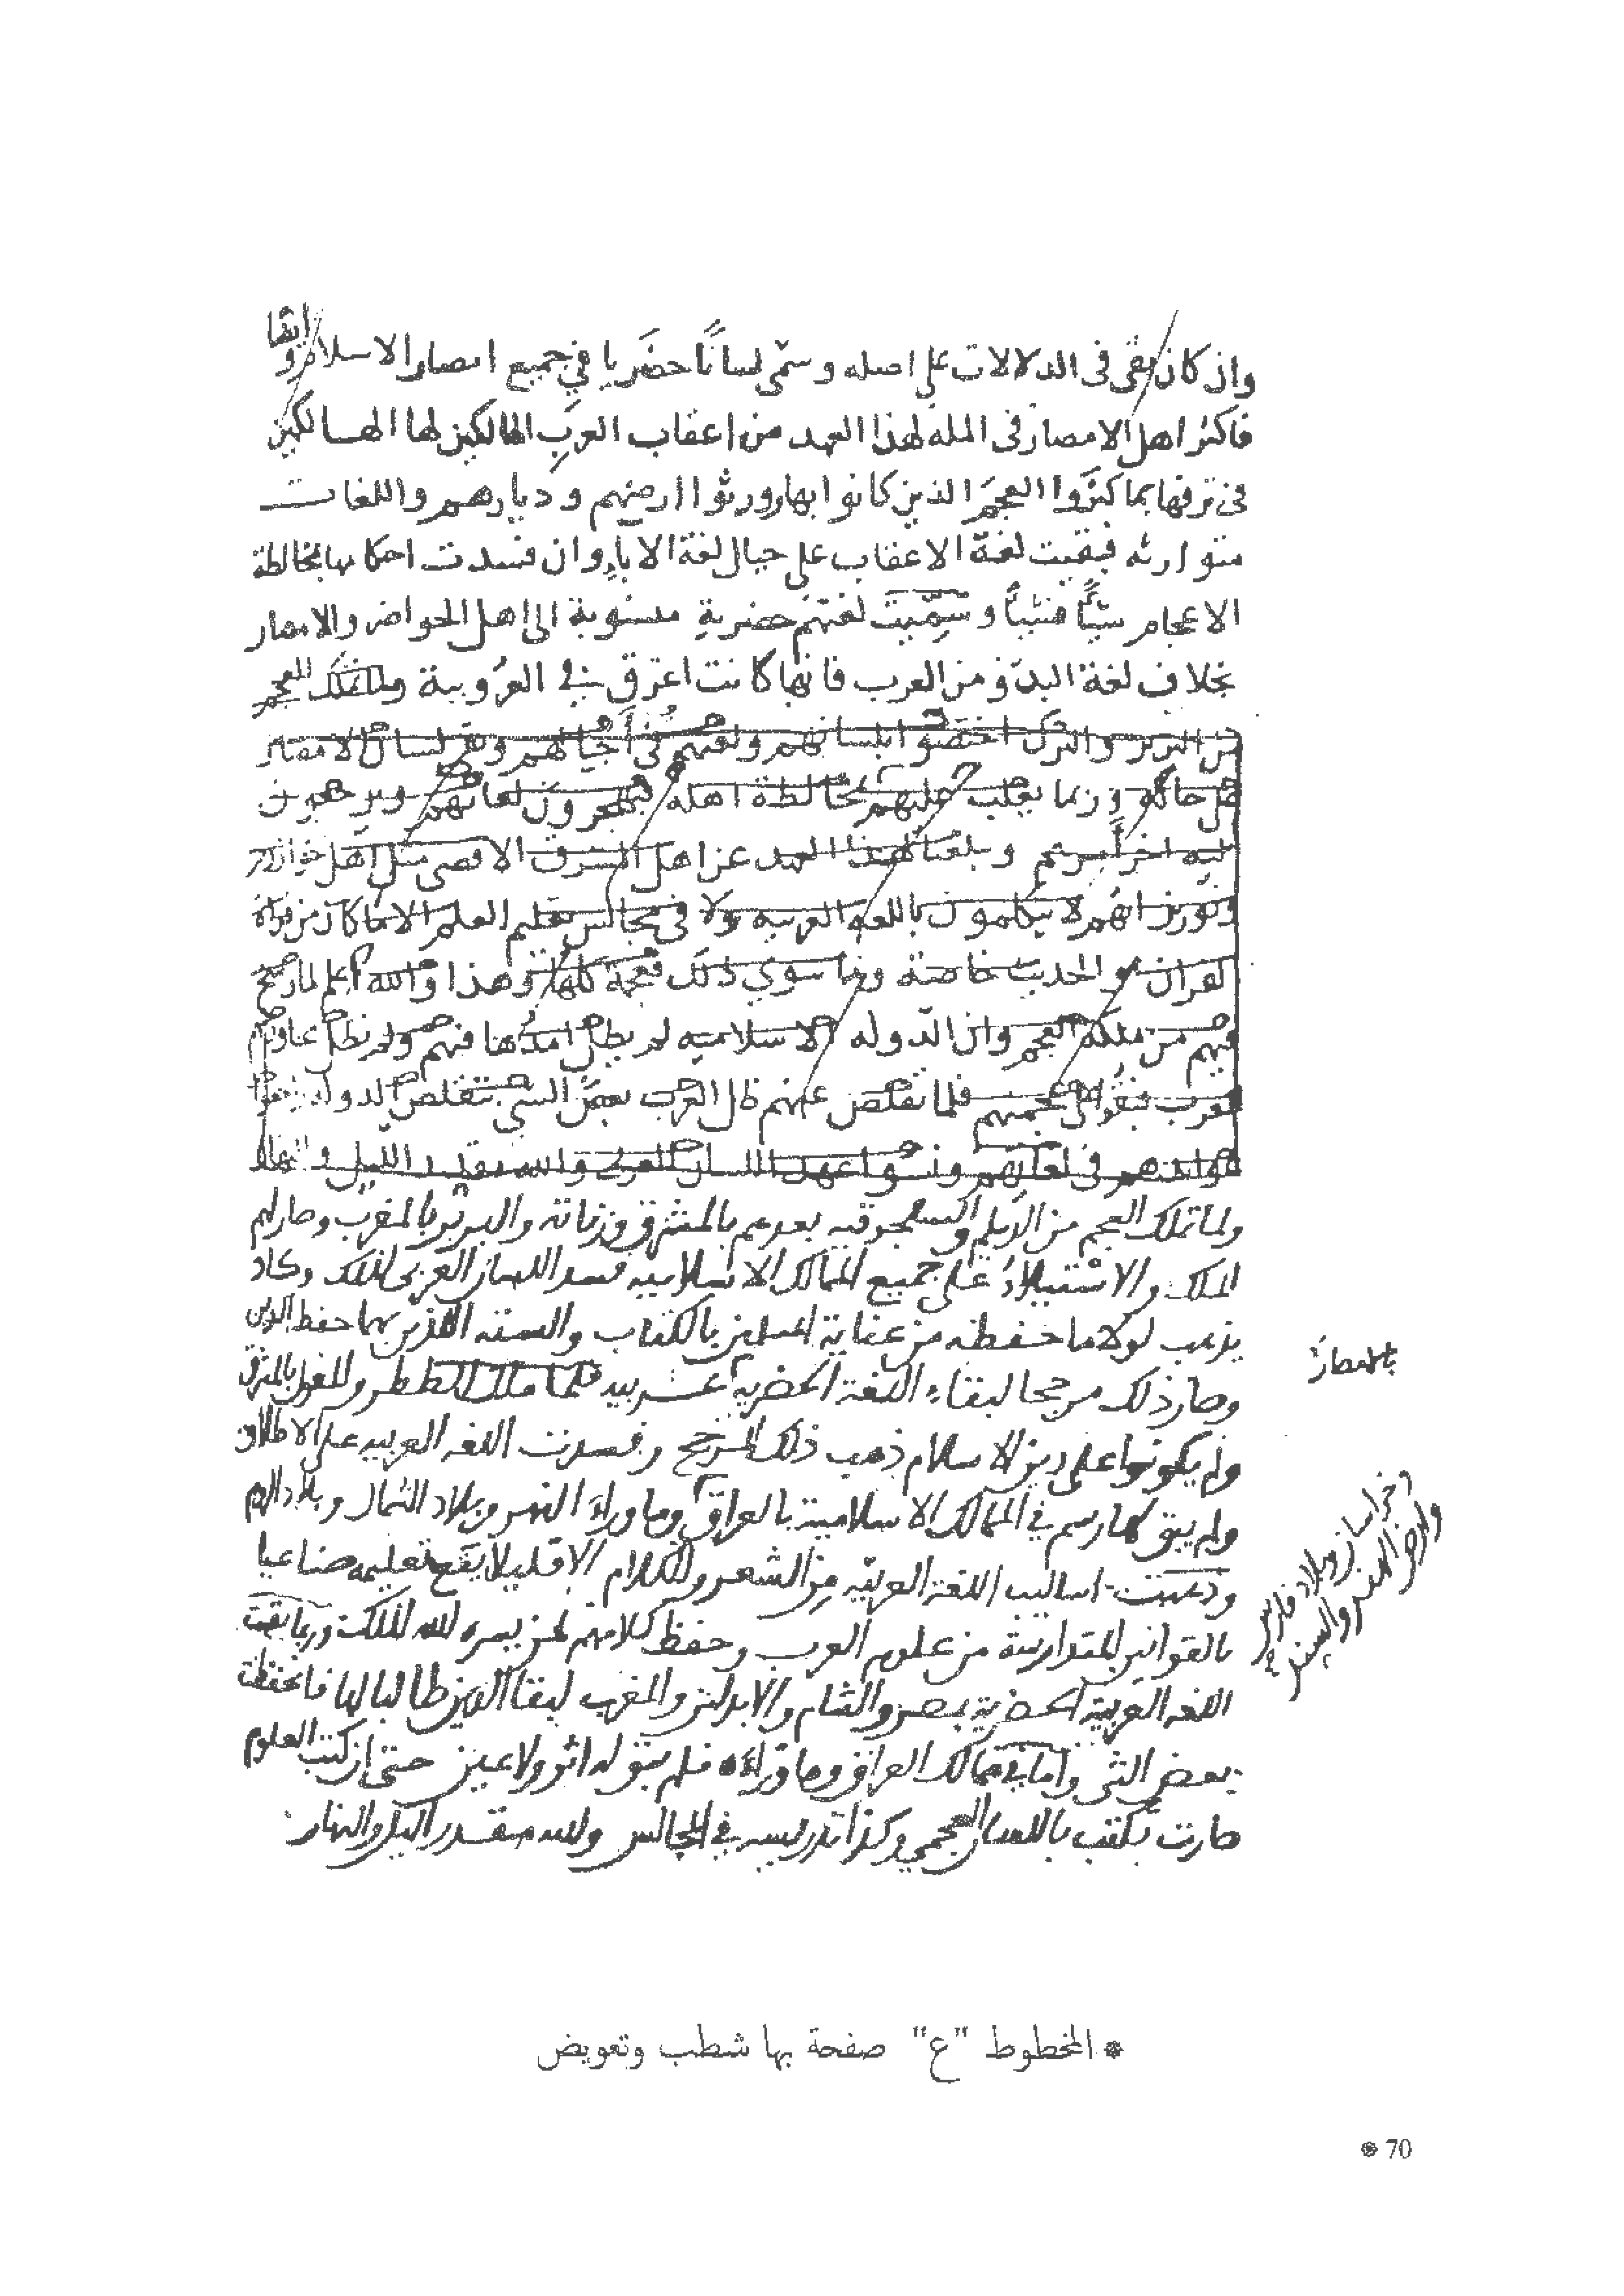 وان كان بقى فى الدلالات على اصله وسمّى لسانًا حضَريا في جميع امصار الاسلام و ايضا
فاكثر اهل الامصار فى المله لهذا العهد من اعقاب العرَب المالكين لها الهالكين
فى ترفها بما كثَروا العجمَ الذين كانوا بها وورثوا ارضهم وديارهم واللغات
متوارثه فبقيت لغة الاعقاب على حيال لغة الاباءِ وان فسدت احكامها بمخالطة
الاعجام شيًّا فشيًا وسُمِّيت لغتهم حضرية منسوبة الى اهل الحواضر والامصار
بخلاف لغة البدو من العرب فانها كانت اعرق في العرُوبية ولما تملك العجم
من البربر والترك اختصّوا بلسانهم ولغتهم فى اجيالهم وبقى لسان الامصار
على حاله وربما يغلب عليهم بمخالطة اهله فيهجرون لغاتهم ويرجعون
اليه اخراً وبلغنا لهذا العهد عن اهل المشرق الاقصى مثل اهل خوارزم
انهم لا يتكلمون باللغه العربيه ولا فى مجالس تعليم العلم الا ما كان من قراة
القران والحديث خاصة وما سوى ذلك فعجمة كلها وهذا والله اعلم لما رسخ
فيهم من ملكة العجم وان الدوله الاسلاميه لم يطل امدُها فيهم ولم
العرب فبقوا على عجمتهم فلما تقلص عنهم ظل العرب بعض الشى بتقلص الدولة
عوايدهم فى لغاتهم ونسوا عهد اللسان العربى والله مقدر الليل والنهار
ولما تملك العجم من الديلم والسلجوقيه بعدهم بالمشرق وزناته والبربر بالمغرب وصار لهم
الملك والاستيلاءُ على جميع الممالك الاسلاميه فسد اللسان العربى لذلك وكاد
يذهب لولا ما حفظه من عناية المسلمين بالكتاب والسنه اللذين بهما حفظ الدين
وصار ذلك مرجحا لبقاء اللغة الحضرية عربيه فلما ملك الططر والمغل بالمشرق
بالامصار
ولم يكونوا على دين الاسلام ذهب ذلك المرجح وفسدت اللغه العربيه على الاطلاق
ولم يبق لها رسم في الممالك الاسلامية بالعراق وما وراءَ النهر وبلاد الشمال وبلاد الروم
وخراسان وبلاد فارس
وارض الهند والسند
وذهبت اساليب اللغة العربيّه مِن الشعر والكلام الا قليلا يقع تعليمه صناعيا
بالقوانين المتدارسة من علوم العرب وحفظ كلامهم لمن يسره الله لذلك وربما بقيت
اللغه العربية الحضرية بمصر والشام والاندلس والمغرب لبقا الدين طالبا لها فانحفظت
بعض الشى واما في ممالك العراق وما وراءَه فلم يبق له اثر ولا عين حتى ان كتب العلوم
صارت تكتب باللسان العجمي وكذا تدريسه في المجالس والله مقدر اليل والنهار
❋ المخطوط "ع" صفحة بها شطب وتعويض
❋ 70